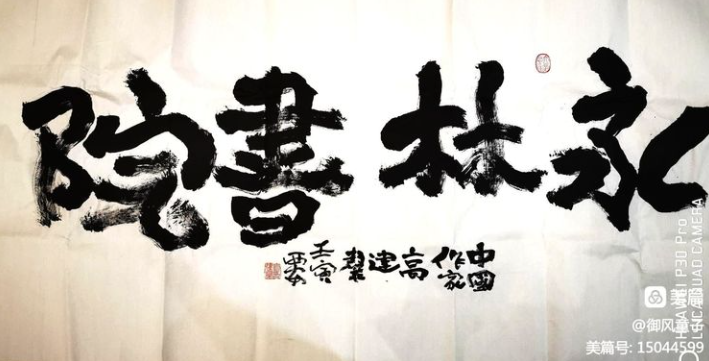 永林書院
中國
作家
高建
壬寅
HUAWEI P30 Pro
LEICA QUAD CAMERA
美篇
@御风童子
美篇号: 15044599